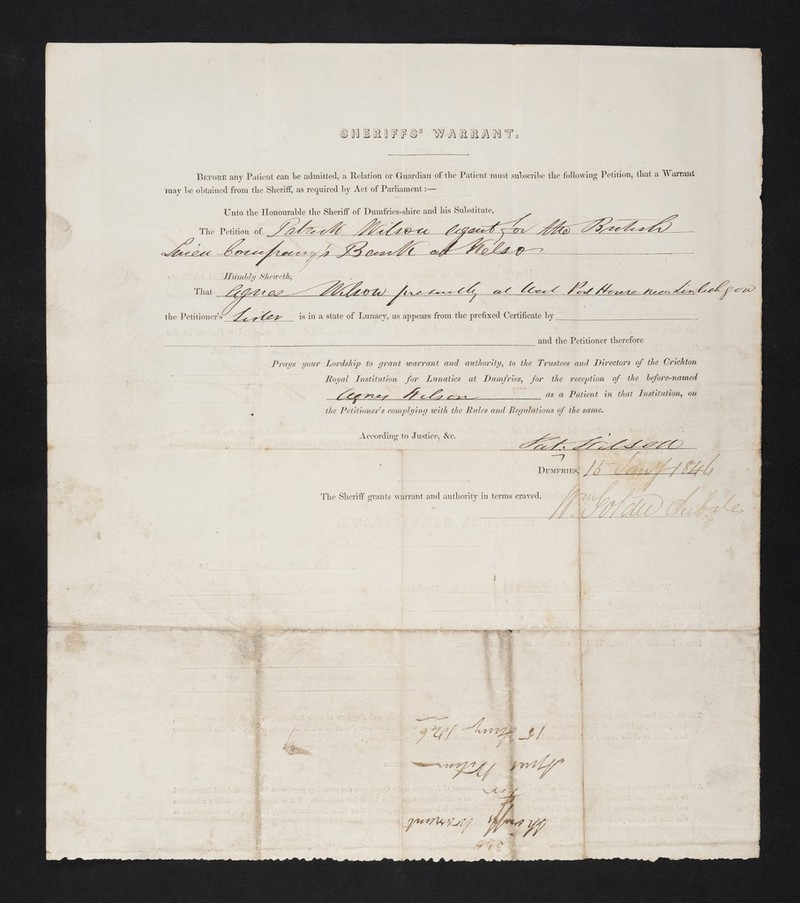 SHERIFFS' WARRANT.
BEFORE any Patient can be admitted, a Relation or Guardian of the Patient must subscribe the following Petition, that a Warrant
may be obtained from the Sheriff, as required by Act of Parliament :—
Unto the Honourable the Sheriff of Dumfries-shire and his Substitute,
The Petition of Patrick Wilson agent for the British
Linen Company's Bank at Kelso
Humbly Sheweth,
That Agnes Wilson presently at West Port House near Linlithgow
the Petitioner's Sister is in a state of Lunacy, as appears from the prefixed Certificate by
and the Petitioner therefore
Prays your Lordship to grant warrant and authority, to the Trustees and Directors of the Crichton
Royal Institution for Lunatics at Dumfries, for the reception of the before-named
Agnes Wilson as a Patient in that Institution, on
the Petitioner's complying with the Rules and Regulations of the same.
According to Justice, &c.
Pat: Wilson
DUMFRIES, 15 Jany 1846
The Sheriff grants warrant and authority in terms craved.
Wm Goldie Subste
Sheriffs Warrant
for
Agnes Wilson
15 Jany 1846